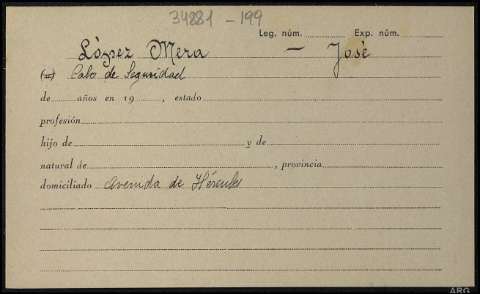 34881-199
Leg. núm. Exp. núm.
López Mera — José
(a) Cabo de Seguridad
de años en 19 , estado
profesión
hijo de y de
natural de , provincia
domiciliado Avenida de Hércules
ARG